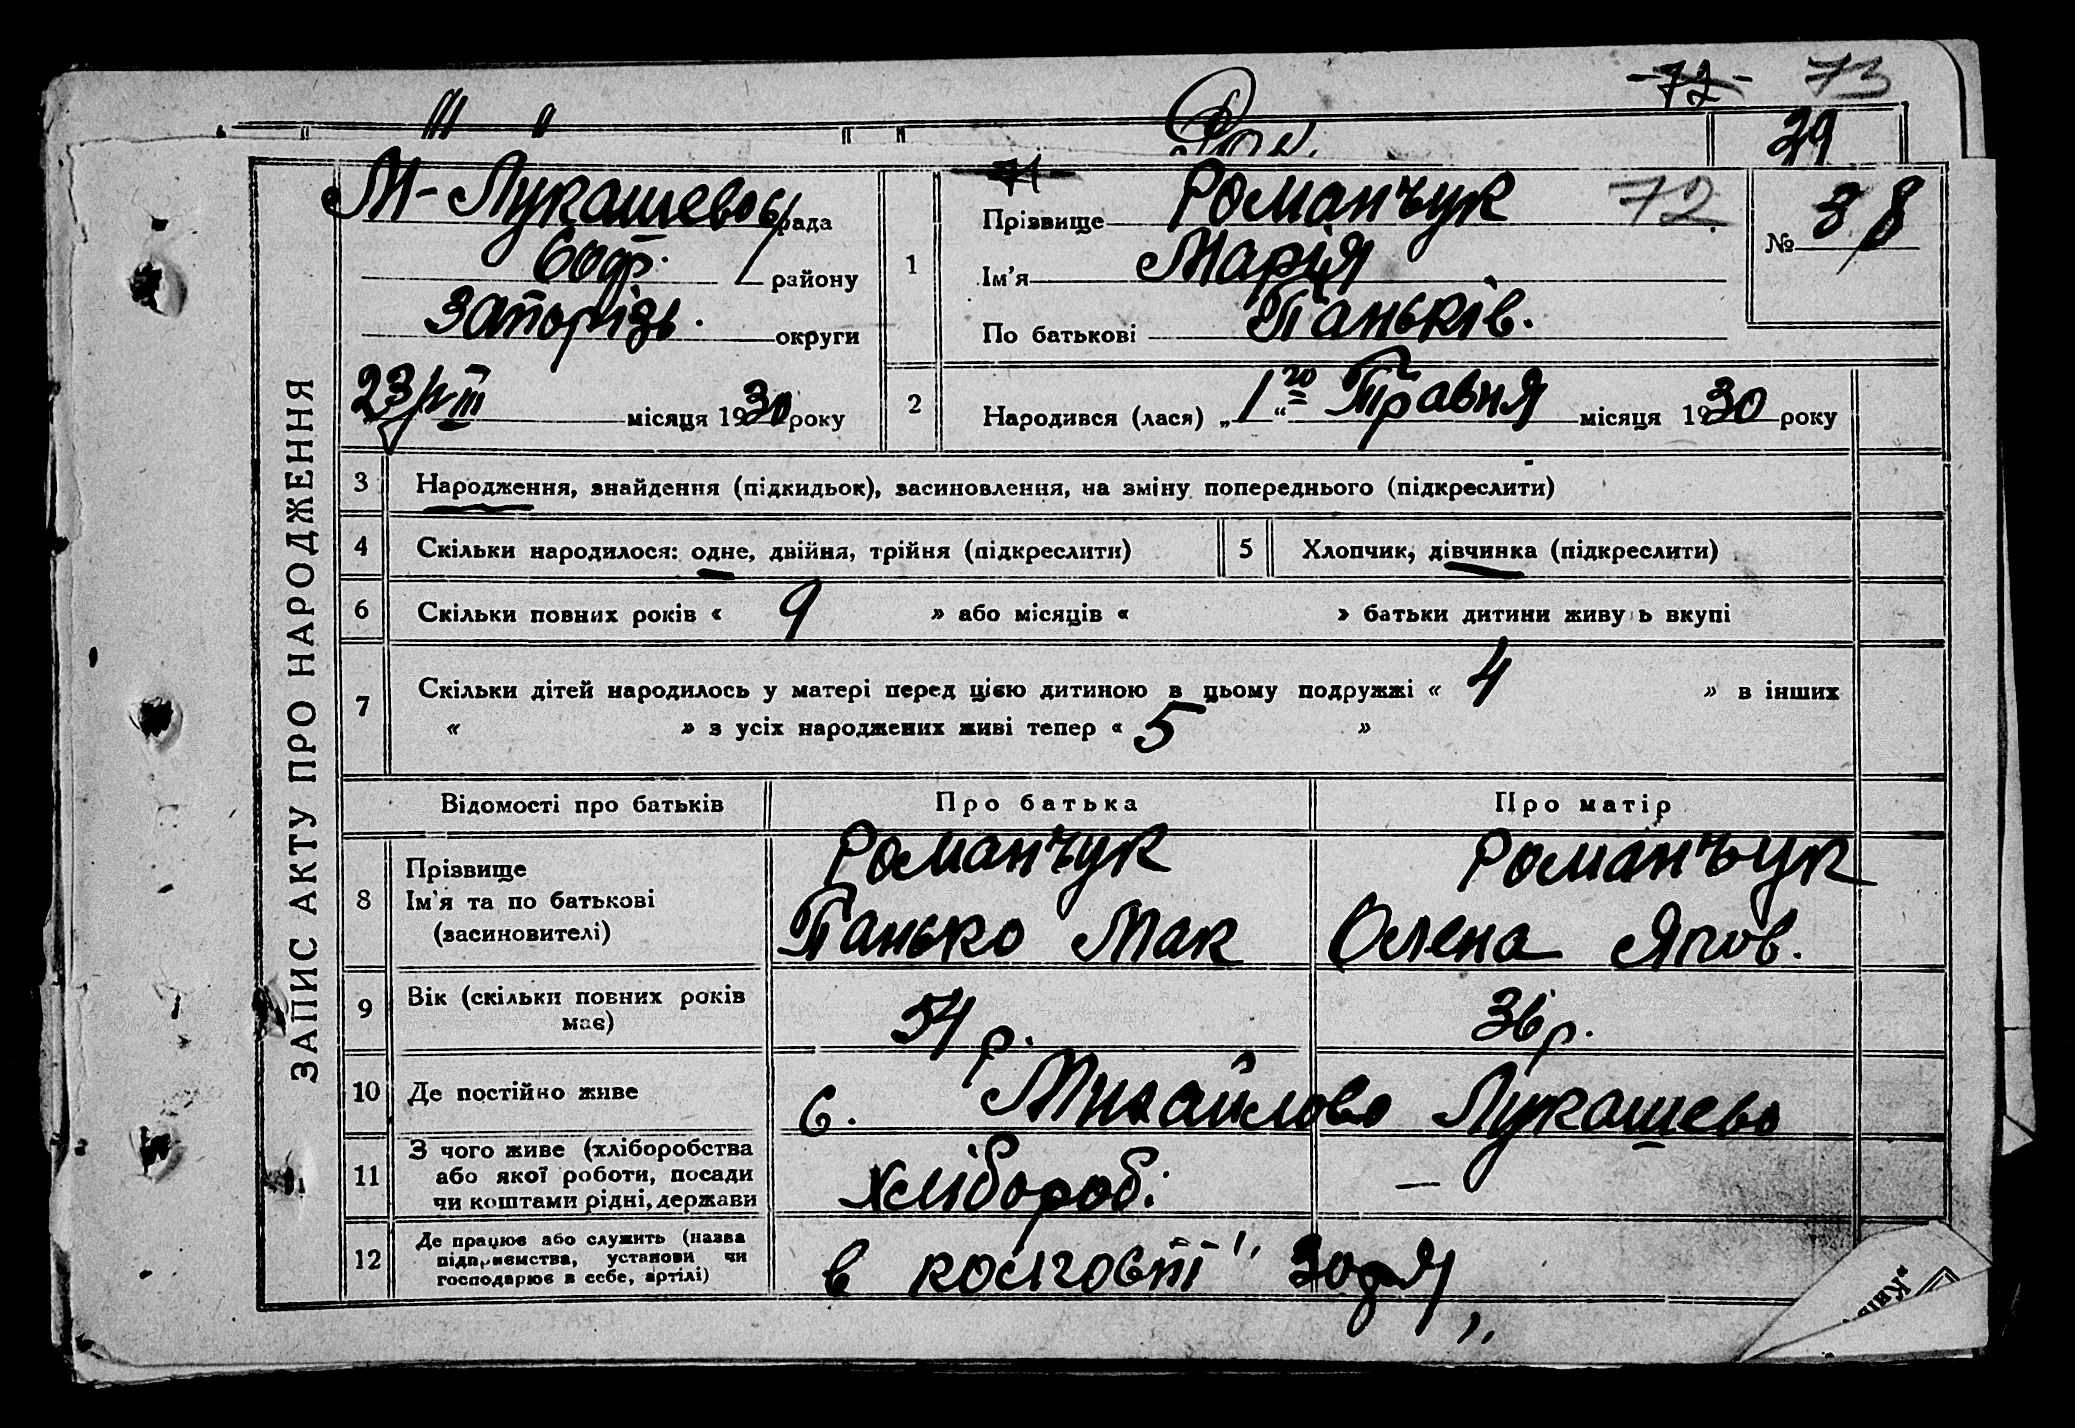 -72- 73
39
М-Лукашевос/рада
Соф. району
Запорізь. округи
23/VIII місяця 1930 року
1
71
Прізвище Романчук 72
Ім'я Марія
По батькові Паньків.
№ 38
2
Народився (лася) „1го“ Травня місяця 1930 року
ЗАПИС АКТУ ПРО НАРОДЖЕННЯ
3 Народження, знайдення (підкидьок), засиновлення, на зміну попереднього (підкреслити)
4 Скільки народилося: одне, двійня, трійня (підкреслити) 5 Хлопчик, дівчинка (підкреслити)
6 Скільки повних років « 9 » або місяців « » батьки дитини живу ь вкупі
7 Скільки дітей народилось у матері перед цією дитиною в цьому подружжі « 4 » в інших
« » з усіх народжених живі тепер « 5 »
Відомості про батьків Про батька Про матір
8 Прізвище Романчук Романчук
Ім'я та по батькові Панько Мак Олена Яков.
(засиновителі)
9 Вік (скільки повних років має) 54 р. 36 р.
10 Де постійно живе с. Михайлово Лукашево
11 З чого живе (хліборобства
або якої роботи, посади
чи коштами рідні, держави хлібороб. —
12 Де працює або служить (назва
підприємства, установи чи
господарює в себе, артілі) в колгоспі "Зоря"